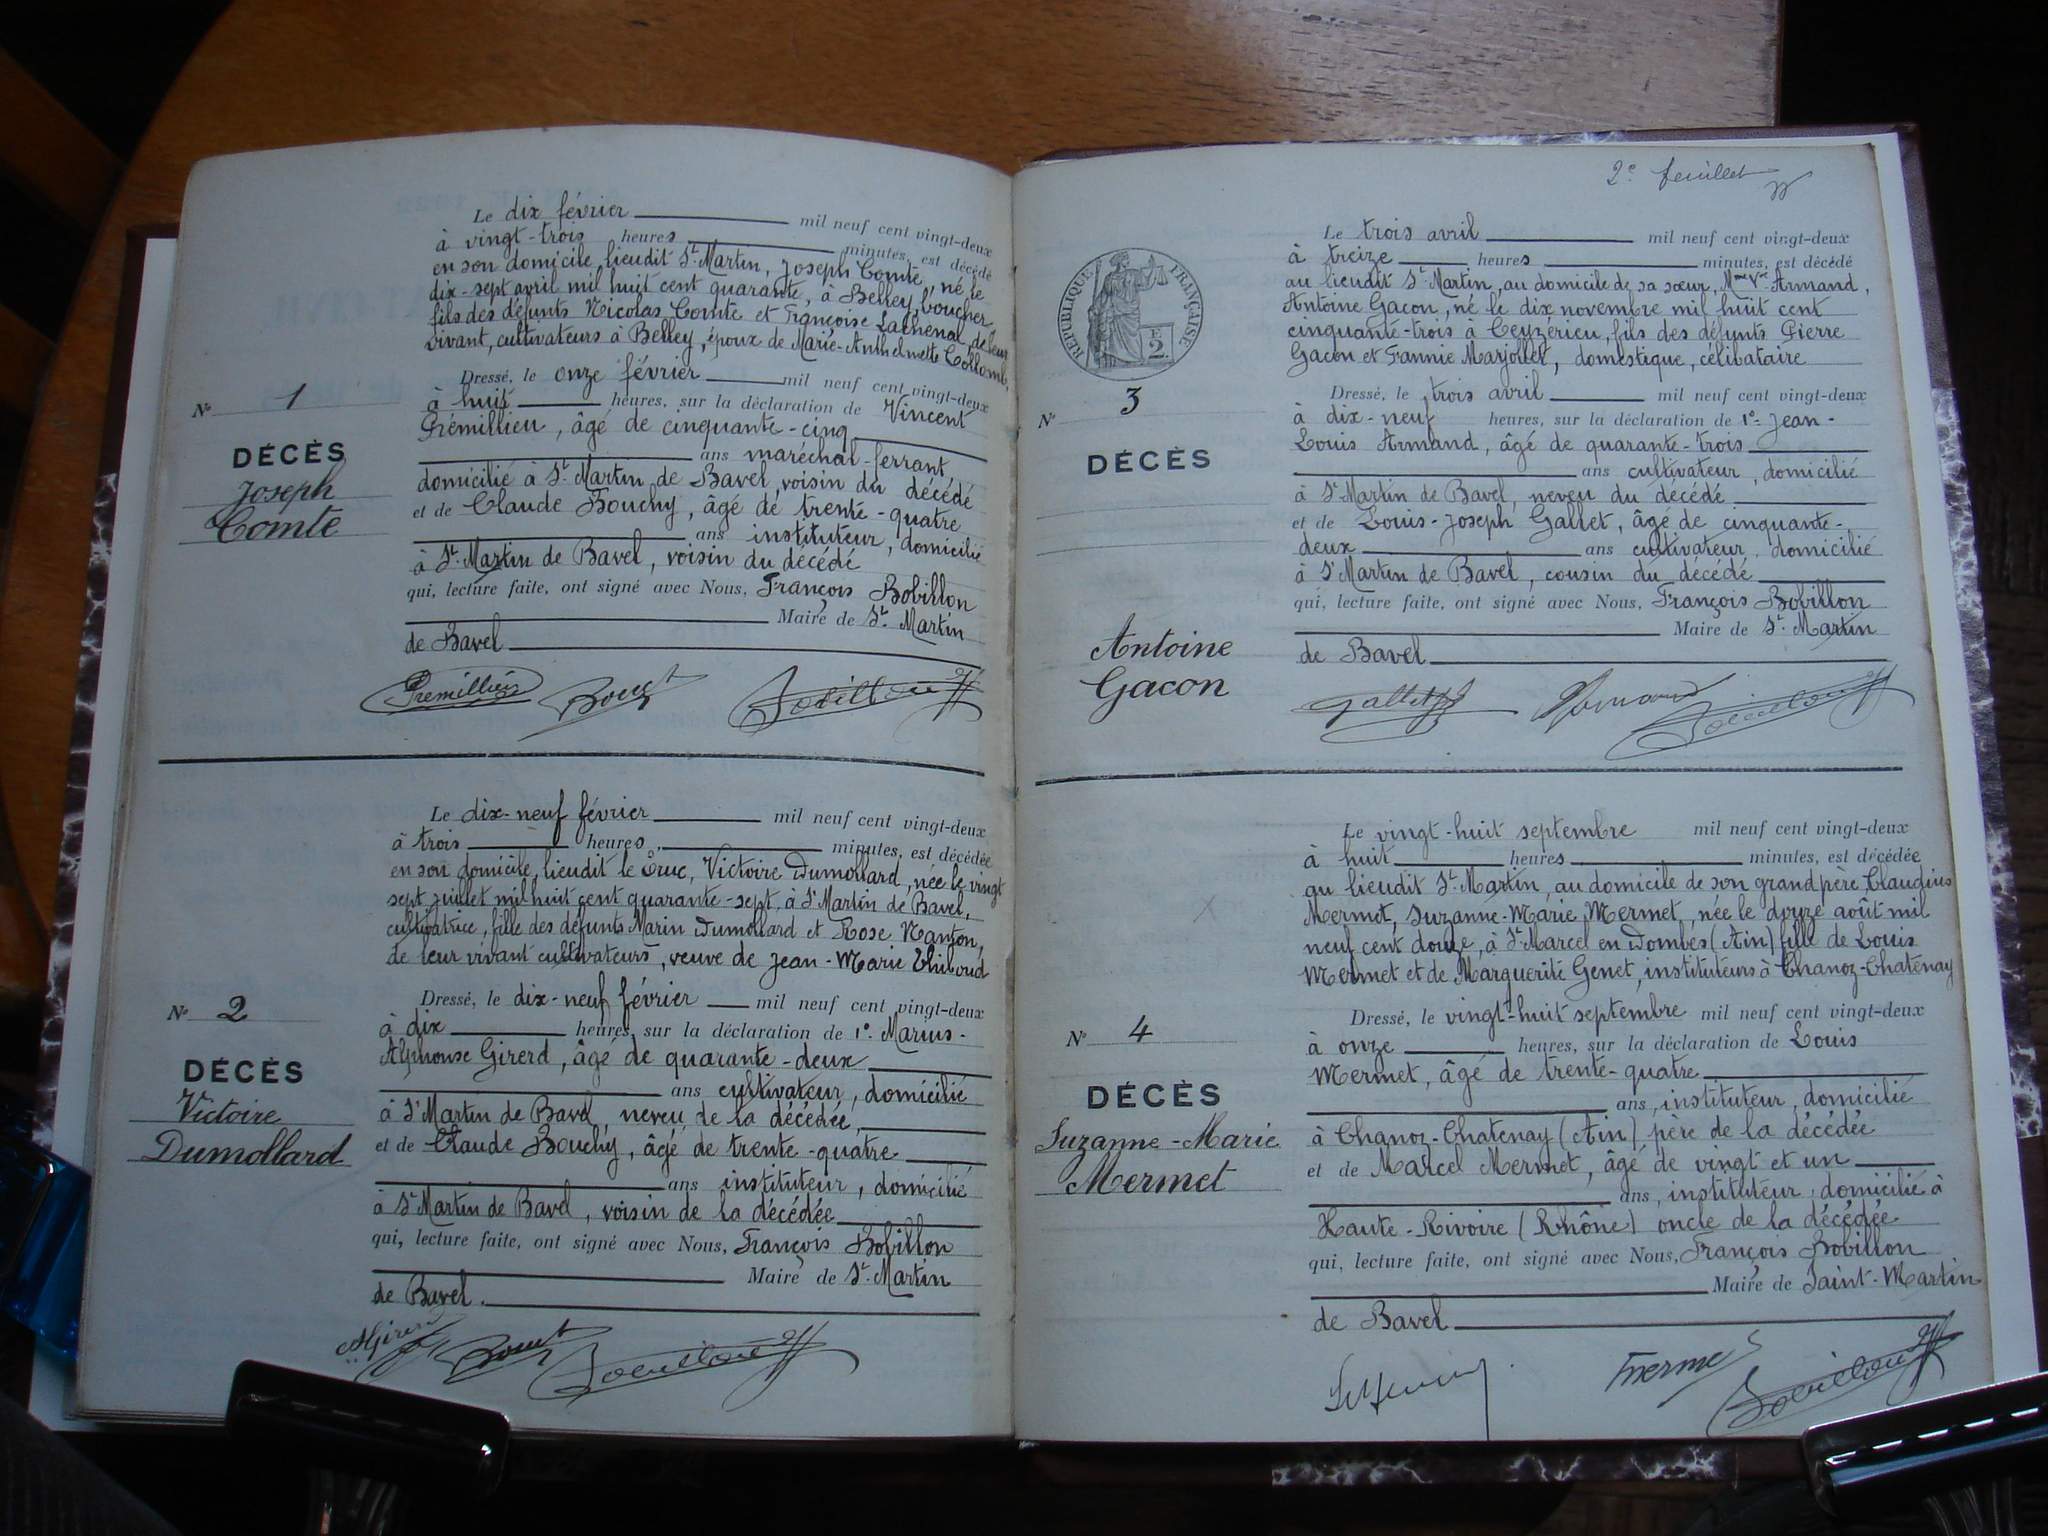 Le dix février mil neuf cent vingt-deux
à vingt-trois heures minutes, est décédé
en son domicile, lieudit St Martin, Joseph Comte, né le
dix-sept avril mil huit cent quarante, à Belley, boucher,
fils des défunts Nicolas Comte et Françoise Lathenal, de leur
vivant, cultivateurs à Belley, époux de Marie-Anthelmette Collomb,
Dressé, le onze février mil neuf cent vingt-deux
No 1
à huit heures, sur la déclaration de Vincent
Grémillieu, âgé de cinquante-cinq
DÉCÈS
ans maréchal-ferrant
Joseph
domicilié à St Martin de Bavel, voisin du décédé
Comte
et de Claude Bouchy, âgé de trente-quatre
ans instituteur, domicilié
à St Martin de Bavel, voisin du décédé
qui, lecture faite, ont signé avec Nous, François Bobillon
Maire de St Martin
de Bavel
Le dix-neuf février mil neuf cent vingt-deux
à trois heures minutes, est décédée
en son domicile, lieudit le Truc, Victoire Dumollard, née le vingt
sept juillet mil huit cent quarante-sept, à St Martin de Bavel,
cultivatrice, fille des défunts Marin Dumollard et Rose Nanton,
de leur vivant cultivateurs, veuve de Jean-Marie Thiboud
Dressé, le dix-neuf février mil neuf cent vingt-deux
No 2
à dix heures, sur la déclaration de 1o Marius-
Alphonse Girerd, âgé de quarante-deux
DÉCÈS
ans cultivateur, domicilié
Victoire
à St Martin de Bavel, neveu de la décédée,
Dumollard
et de Claude Bouchy, âgé de trente-quatre
ans instituteur, domicilié
à St Martin de Bavel, voisin de la décédée
qui, lecture faite, ont signé avec Nous, François Bobillon
Maire de St Martin
de Bavel.
2e feuillet
RÉPUBLIQUE FRANÇAISE
2
Le trois avril mil neuf cent vingt-deux
à treize heures minutes, est décédé
au lieudit St Martin, au domicile de sa sœur, Mme Vve Armand,
Antoine Gacon, né le dix novembre mil huit cent
cinquante-trois à Ceyzérieu, fils des défunts Pierre
Gacon et Fannie Marjollet, domestique, célibataire
Dressé, le trois avril mil neuf cent vingt-deux
No 3
à dix-neuf heures, sur la déclaration de 1o Jean-
Louis Armand, âgé de quarante-trois
DÉCÈS
ans cultivateur, domicilié
à St Martin de Bavel, neveu du décédé
et de Louis-Joseph Gallet, âgé de cinquante-
deux ans cultivateur, domicilié
à St Martin de Bavel, cousin du décédé
qui, lecture faite, ont signé avec Nous, François Bobillon
Maire de St Martin
Antoine
de Bavel
Gacon
Le vingt-huit septembre mil neuf cent vingt-deux
à huit heures minutes, est décédée
au lieudit St Martin, au domicile de son grand père Claudius
Mermet, Suzanne-Marie Mermet, née le douze août mil
neuf cent douze, à St Marcel en Dombes (Ain) fille de Louis
Mermet et de Marguerite Genet, instituteurs à Chanoz-Chatenay
Dressé, le vingt-huit septembre mil neuf cent vingt-deux
No 4
à onze heures, sur la déclaration de Louis
Mermet, âgé de trente-quatre
DÉCÈS
ans, instituteur, domicilié
Suzanne-Marie
à Chanoz-Chatenay (Ain) père de la décédée
Mermet
et de Marcel Mermet, âgé de vingt et un
ans, instituteur, domicilié à
Haute-Rivoire (Rhône) oncle de la décédée
qui, lecture faite, ont signé avec Nous, François Bobillon
Maire de Saint-Martin
de Bavel